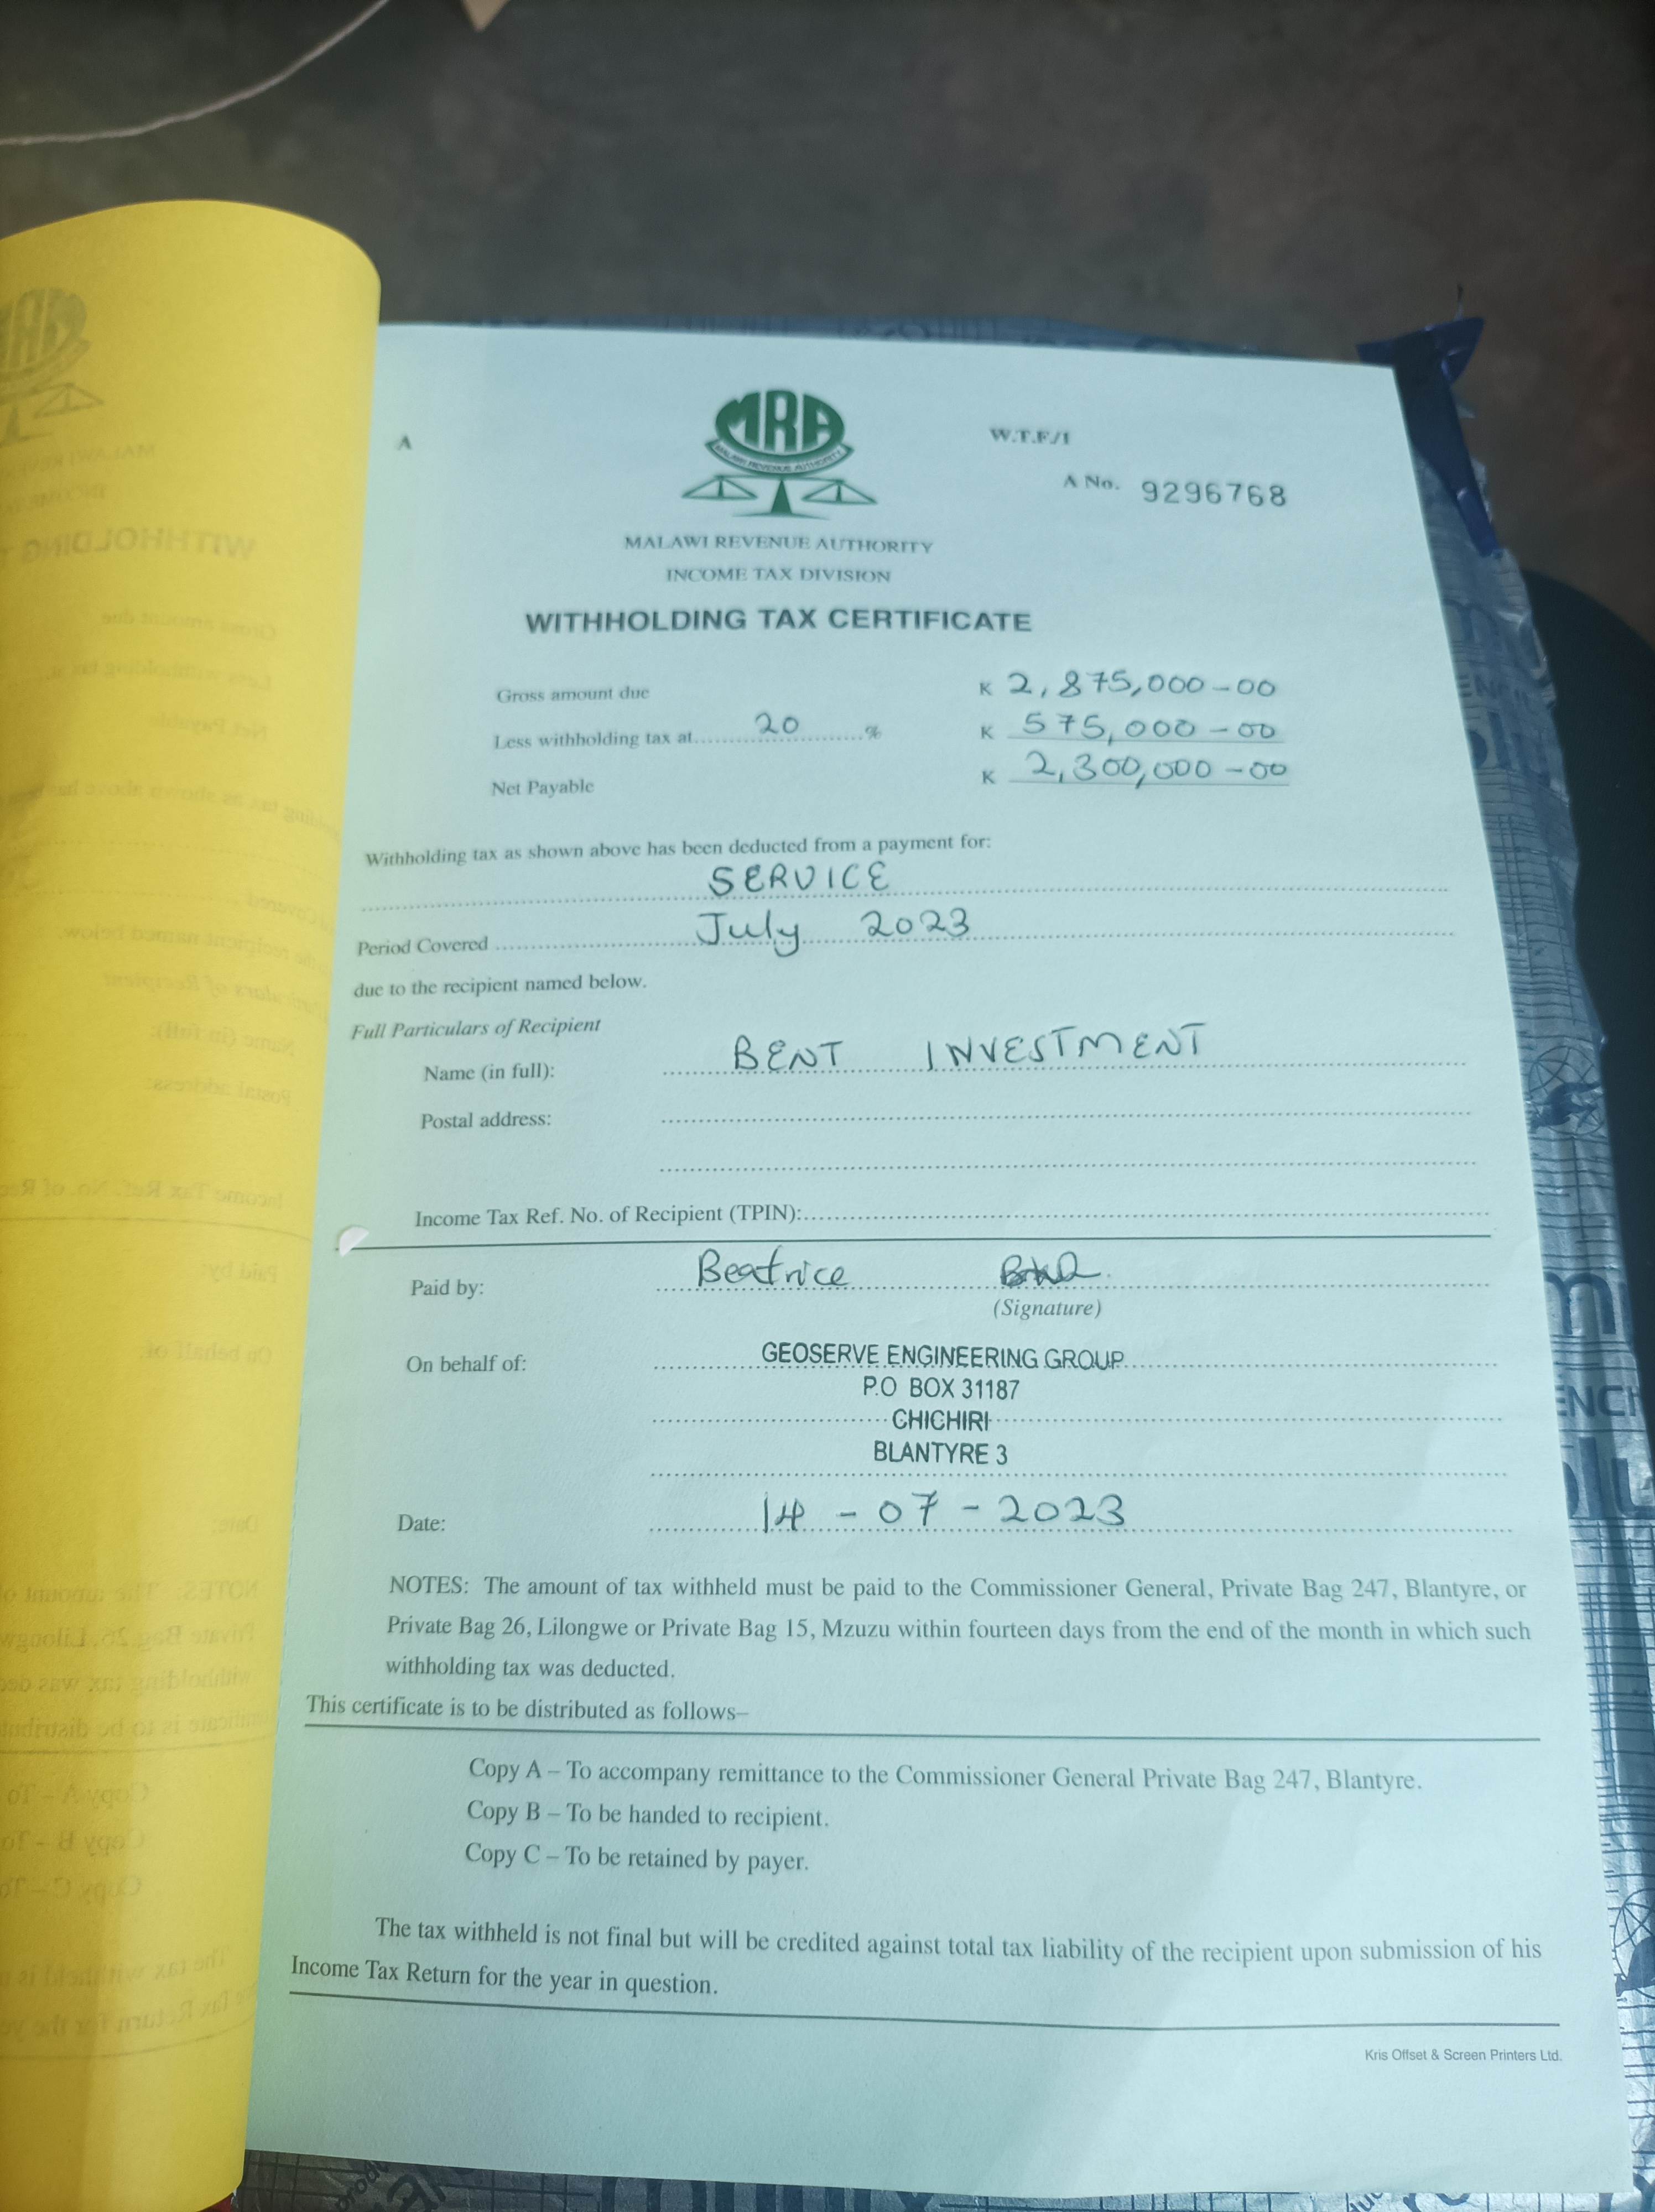 A
MRA
MALAWI REVENUE AUTHORITY
W.T.F/1
A No. 9296768
MALAWI REVENUE AUTHORITY
INCOME TAX DIVISION
WITHHOLDING TAX CERTIFICATE
Gross amount due K 2,875,000-00
Less withholding tax at 20 % K 575,000-00
Net Payable K 2,300,000-00
Withholding tax as shown above has been deducted from a payment for:
SERVICE
Period Covered July 2023
due to the recipient named below.
Full Particulars of Recipient
Name (in full): BENT INVESTMENT
Postal address:
Income Tax Ref. No. of Recipient (TPIN):
Paid by: Beatrice
(Signature)
On behalf of: GEOSERVE ENGINEERING GROUP
P.O BOX 31187
CHICHIRI
BLANTYRE 3
Date: 14-07-2023
NOTES: The amount of tax withheld must be paid to the Commissioner General, Private Bag 247, Blantyre, or
Private Bag 26, Lilongwe or Private Bag 15, Mzuzu within fourteen days from the end of the month in which such
withholding tax was deducted.
This certificate is to be distributed as follows–
Copy A – To accompany remittance to the Commissioner General Private Bag 247, Blantyre.
Copy B – To be handed to recipient.
Copy C – To be retained by payer.
The tax withheld is not final but will be credited against total tax liability of the recipient upon submission of his
Income Tax Return for the year in question.
Kris Offset & Screen Printers Ltd.